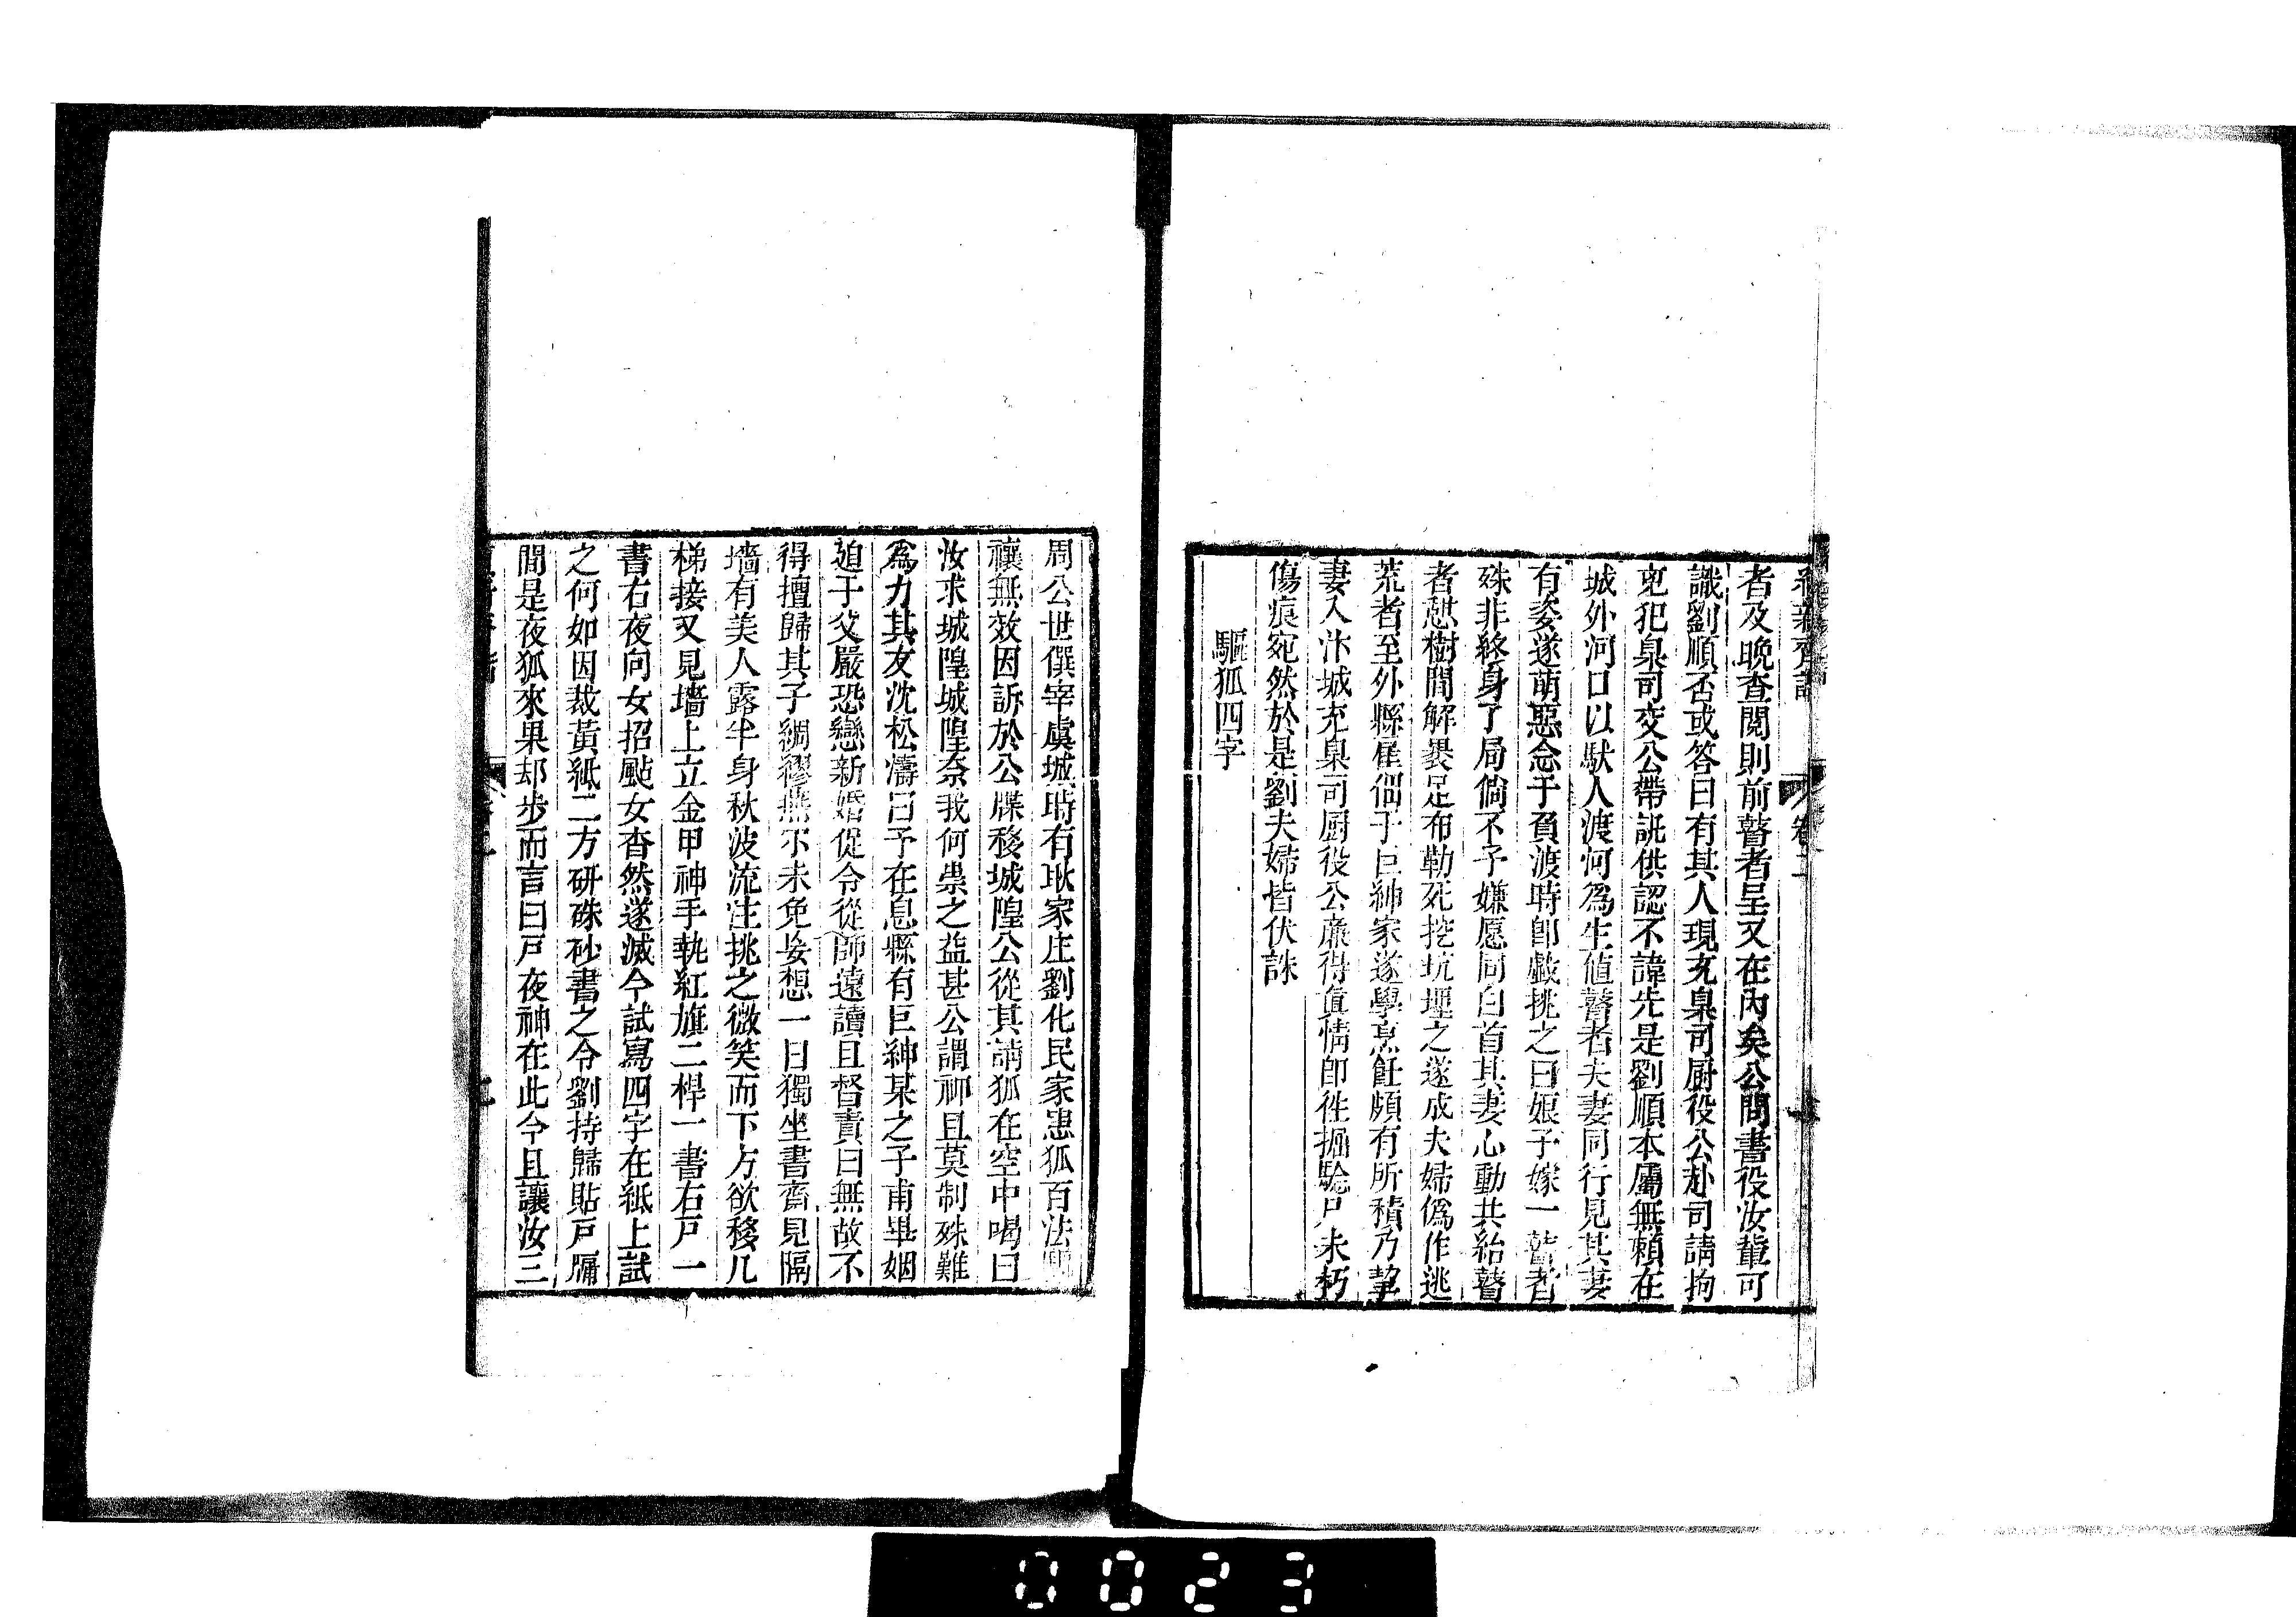 者及晚查閱則前瞽者呈又在內矣公問書役汝輩可
識劉順否或答曰有其人現充臬司厨役公赴司請拘
兇犯臬司交公帶訊供認不諱先是劉順本屬無賴在
城外河口以馱人渡河爲生值瞽者夫妻同行見其妻
有姿遂萌惡念于負渡時卽戲挑之曰娘子嫁一瞽者
殊非終身了局倘不予嫌愿同白首其妻心動共紿瞽
者憇樹間解裹足布勒死挖坑埋之遂成夫婦僞作逃
荒者至外縣雇佃于巨紳家遂學烹飪頗有所積乃挈
妻入汴城充臬司厨役公廉得眞情卽徃掘驗尸未朽
傷痕宛然於是劉夫婦皆伏誅
驅狐四字
周公世僎宰虞城時有耿家庄劉化民家患狐百法
禳無效因訴於公牒移城隍公從其請狐在空中喝曰
汝求城隍城隍奈我何祟之益甚公謂神且莫制殊難
爲力其友沈松濤曰予在息縣有巨紳某之子甫畢姻
廹于父嚴恐戀新婚促令從師遠讀且督責曰無故不
得擅歸其子綢繆燕尔未免妄想一日獨坐書齋見隔
墻有美人露半身秋波流注挑之微笑而下方欲移几
梯接又見墻上立金甲神手執紅旗二桿一書右戸一
書右夜向女招颭女杳然遂滅今試寫四字在紙上試
之何如因裁黃紙二方研硃砂書之令劉持歸貼戸牖
間是夜狐來果却步而言曰戸夜神在此今且讓汝三
0023